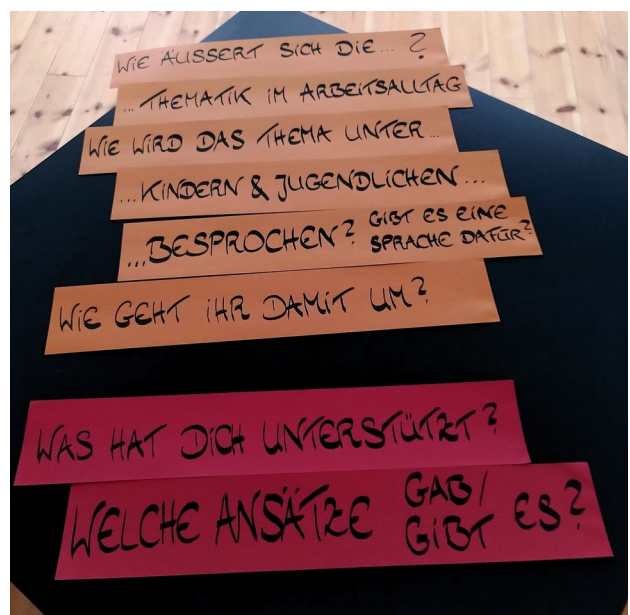 WIE ÄUSSERT SICH DIE... ?
...THEMATIK IM ARBEITSALLTAG
WIE WIRD DAS THEMA UNTER...
...KINDERN & JUGENDLICHEN...
...BESPROCHEN? GIBT ES EINE
SPRACHE DAFÜR?
WIE GEHT IHR DAMIT UM?
WAS HAT DICH UNTERSTÜTZT?
WELCHE ANSÄTZE GAB/
GIBT ES?